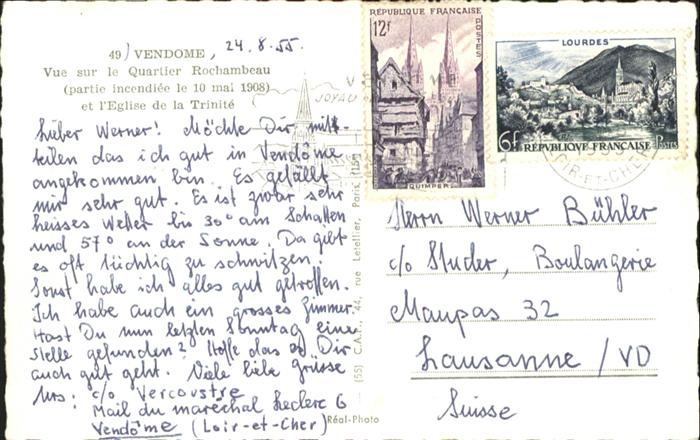 49) VENDOME, 24.8.55.
Vue sur le Quartier Rochambeau
(partie incendiée le 10 mai 1908)
et l'Eglise de la Trinité
Lieber Werner! Möchte Dir mit-
teilen das ich gut in Vendôme
angekommen bin. Es gefällt
mir sehr gut. Es ist zwar sehr
heisses Wetter bis 30° am Schatten
und 57° an der Sonne. Da gibt
es oft tüchtig zu schwitzen.
Sonst habe ich alles gut getroffen.
Ich habe auch ein grosses Zimmer.
Hast Du nun letzten Sonntag eine
Stelle gefunden? Hoffe das es Dir
auch gut geht. Viele liebe Grüsse
Urs: c/o Vercoustre
Mail du maréchal Leclerc 6
Vendôme (Loir-et-Cher)
Réal-Photo
(55) C.A.P., 44, rue Letellier, Paris (15e)
JOYAU
RÉPUBLIQUE FRANÇAISE
12f
POSTES
QUIMPER
LOURDES
6f RÉPUBLIQUE FRANÇAISE POSTES
LOIR-ET-CHER
Herrn Werner Bühler
c/o Studer, Boulangerie
Maupas 32
Lausanne / VD
Suisse